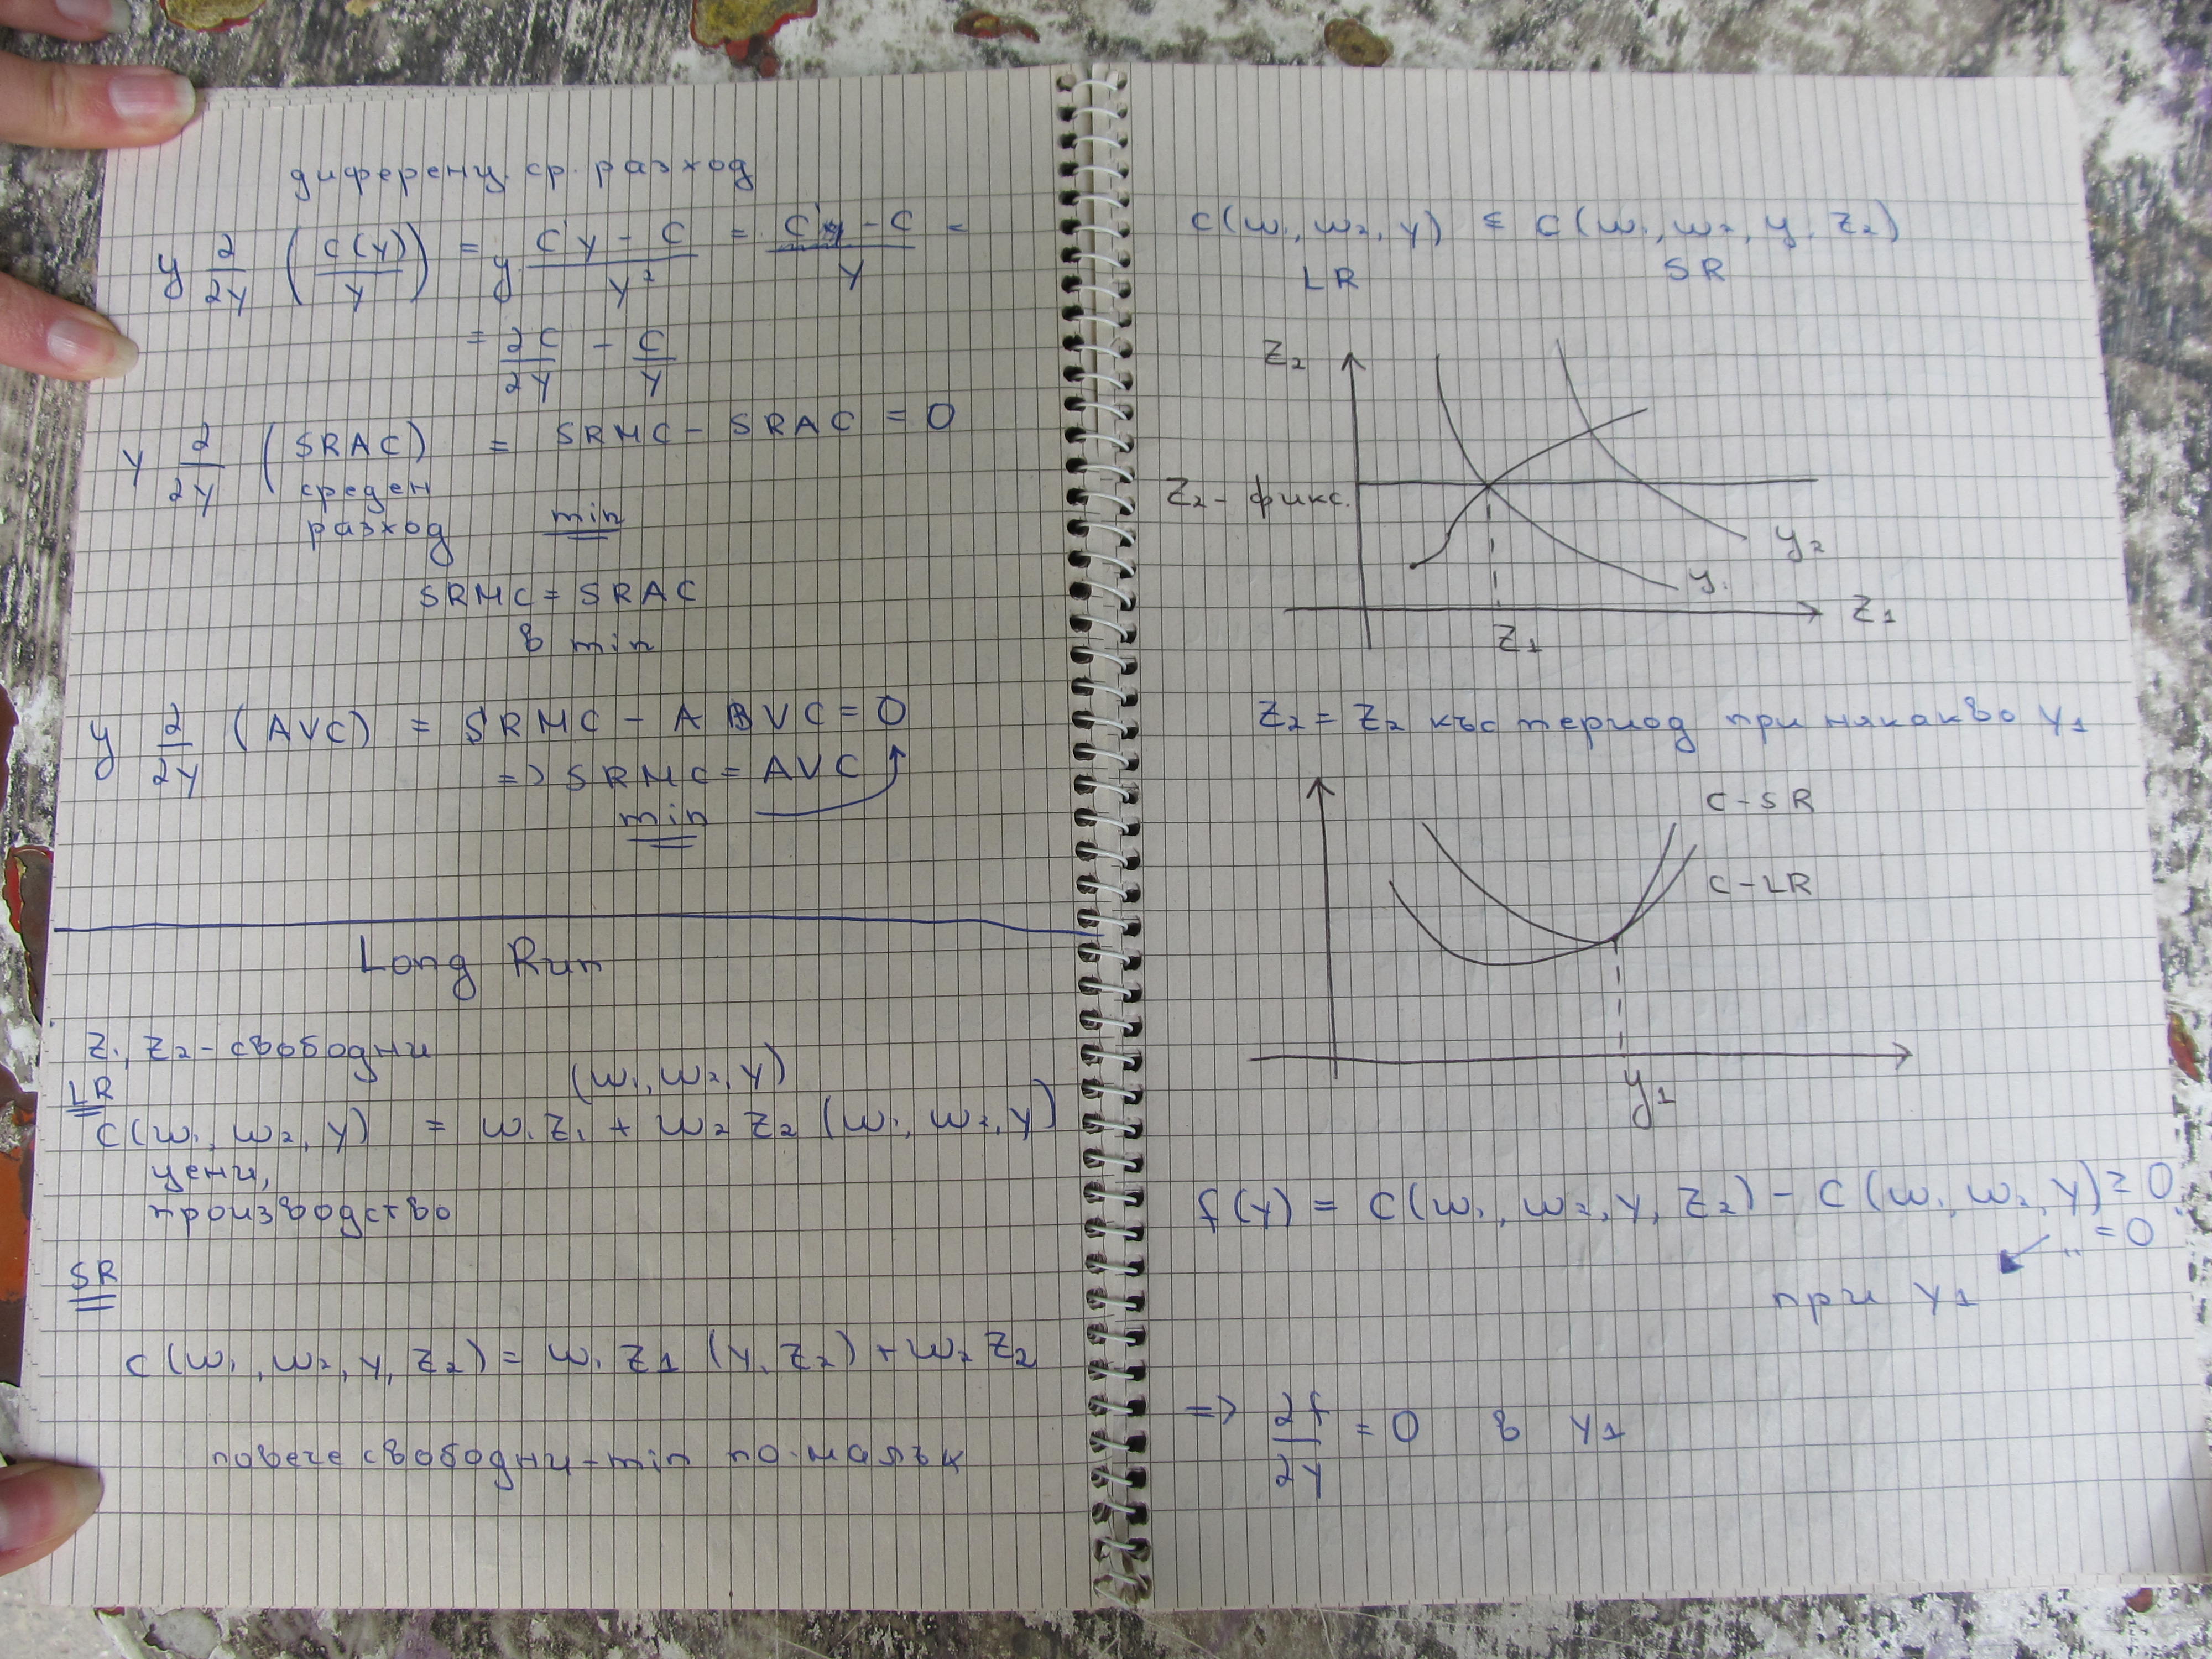 диференц. ср. разход
y ∂/∂y (c(y)/y) = y · (c'y - c)/y² = (c'y - c)/y =
= ∂c/∂y - c/y
y ∂/∂y (SRAC) = SRMC - SRAC = 0
среден
разход min
SRMC = SRAC
в min
y ∂/∂y (AVC) = SRMC - AVC = 0
=> SRMC = AVC
min
Long Run
z₁, z₂ - свободни
LR (w₁, w₂, y)
c(w₁, w₂, y) = w₁z₁ + w₂z₂ (w₁, w₂, y)
цени,
производство
SR
c(w₁, w₂, y, z₂) = w₁z₁ (y, z₂) + w₂z₂
повече свободни - min по-малък
c(w₁, w₂, y) ≤ c(w₁, w₂, y, z₂)
LR SR
z₂
z₂ - фикс.
y₂
y₁
z₁
z₁
z₂ = z₂ къс период при някакво y₁
C - SR
C - LR
y₁
f(y) = c(w₁, w₂, y, z₂) - c(w₁, w₂, y) ≥ 0
= 0
при y₁
=> ∂f/∂y = 0 в y₁